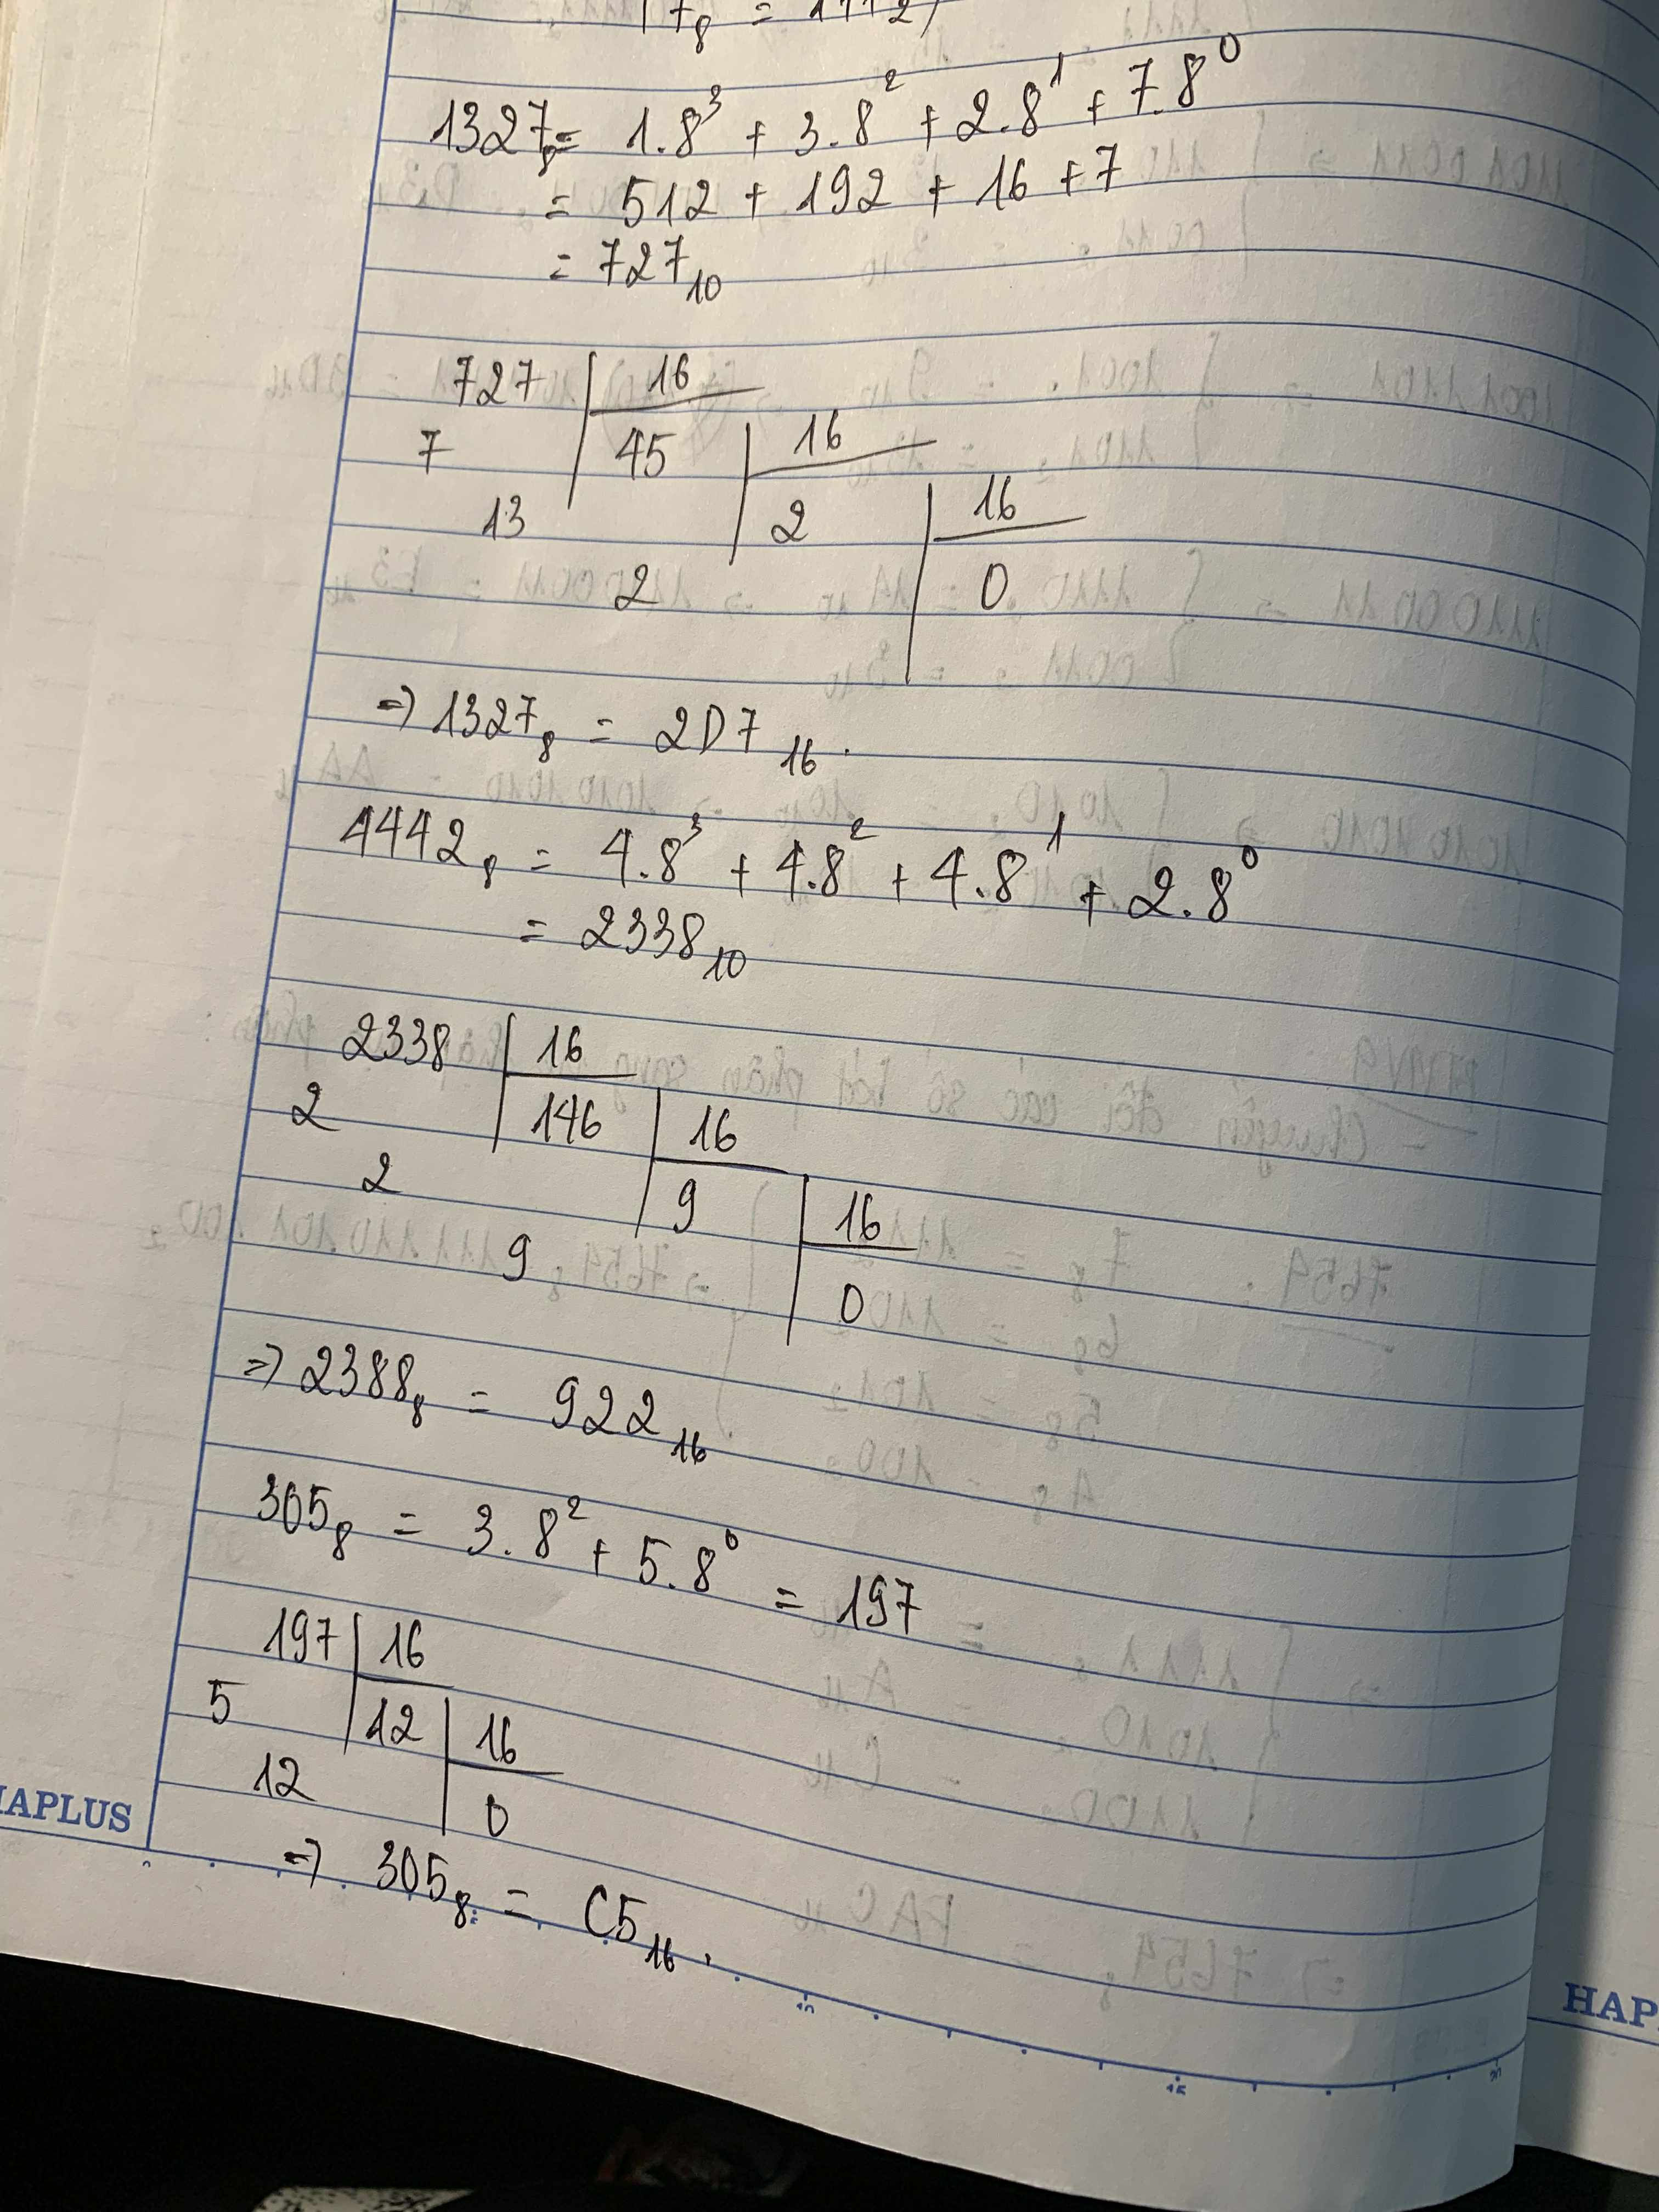 7₈ = 111₂)
1327₈ = 1.8³ + 3.8² + 2.8¹ + 7.8⁰
= 512 + 192 + 16 + 7
= 727₁₀
727 16
7 45 16
13 2 16
2 0
=> 1327₈ = 2D7₁₆.
4442₈ = 4.8³ + 4.8² + 4.8¹ + 2.8⁰
= 2338₁₀
2338 16
2 146 16
2 9 16
9 0
=> 2388₈ = 922₁₆
305₈ = 3.8² + 5.8⁰ = 197
197 16
5 12 16
12 0
=> 305₈ = C5₁₆.
HAPLUS